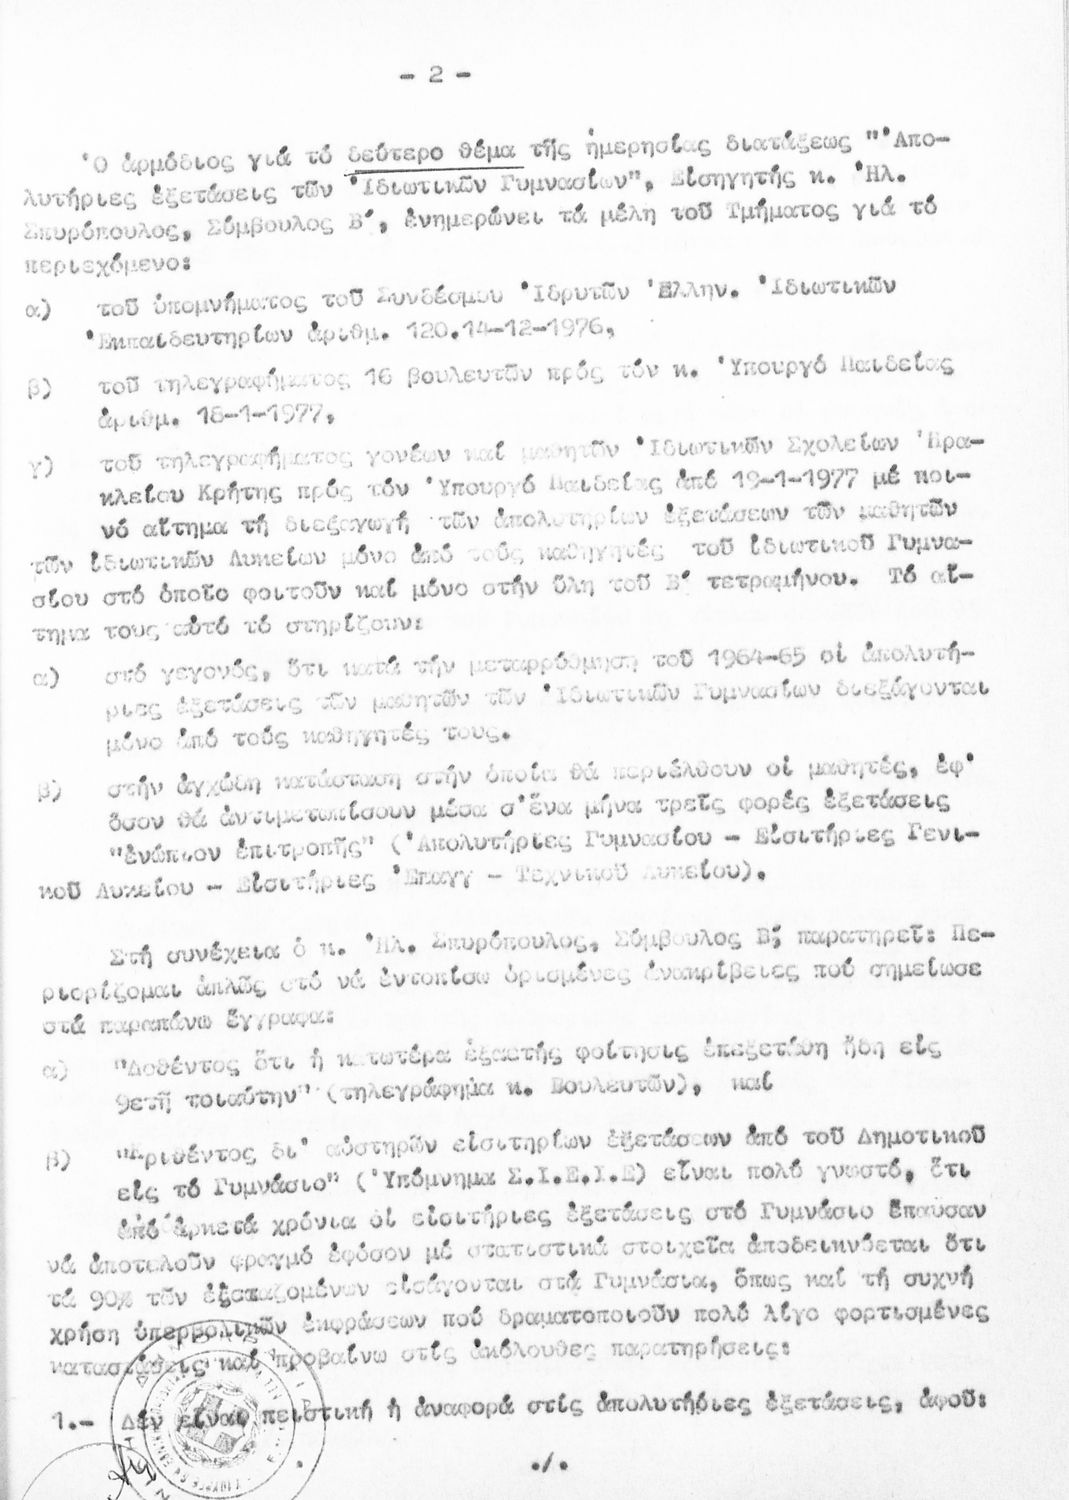 - 2 -
Ὁ ἁρμόδιος γιά τό δεύτερο θέμα τῆς ἡμερησίας διατάξεως "Ἀπο-
λυτήριες ἐξετάσεις τῶν Ἰδιωτικῶν Γυμνασίων", Εἰσηγητής κ. Ἠλ.
Σπυρόπουλος, Σύμβουλος Β΄, ἐνημερώνει τά μέλη τοῦ Τμήματος γιά τό
περιεχόμενο:
α) τοῦ ὑπομνήματος τοῦ Συνδέσμου Ἱδρυτῶν Ἑλλην. Ἰδιωτικῶν
Ἐκπαιδευτηρίων ἀριθμ. 120.14-12-1976,
β) τοῦ τηλεγραφήματος 16 βουλευτῶν πρός τόν κ. Ὑπουργό Παιδείας
ἀριθμ. 18-1-1977,
γ) τοῦ τηλεγραφήματος γονέων καί μαθητῶν Ἰδιωτικῶν Σχολείων Ἡρα-
κλείου Κρήτης πρός τόν Ὑπουργό Παιδείας ἀπό 19-1-1977 μέ κοι-
νό αἴτημα τή διεξαγωγή τῶν ἀπολυτηρίων ἐξετάσεων τῶν μαθητῶν
τῶν ἰδιωτικῶν Λυκείων μόνο ἀπό τούς καθηγητές τοῦ ἰδιωτικοῦ Γυμνα-
σίου στό ὁποῖο φοιτοῦν καί μόνο στήν ὕλη τοῦ Β΄ τετραμήνου. Τό αἴ-
τημα τους αὐτό τό στηρίζουν:
α) στό γεγονός, ὅτι κατά τήν μεταρρύθμηση τοῦ 1964-65 οἱ ἀπολυτή-
ριες ἐξετάσεις τῶν μαθητῶν τῶν Ἰδιωτικῶν Γυμνασίων διεξάγονται
μόνο ἀπό τούς καθηγητές τους.
β) στήν ἀγχώδη κατάσταση στήν ὁποία θά περιέλθουν οἱ μαθητές, ἐφ'
ὅσον θά ἀντιμετωπίσουν μέσα σ'ἕνα μήνα τρεῖς φορές ἐξετάσεις
"ἐνώπιον ἐπιτροπῆς" (Ἀπολυτήριες Γυμνασίου - Εἰσιτήριες Γενι-
κοῦ Λυκείου - Εἰσιτήριες Ἐπαγγ - Τεχνικοῦ Λυκείου).
Στή συνέχεια ὁ κ. Ἠλ. Σπυρόπουλος, Σύμβουλος Β΄, παρατηρεῖ: Πε-
ριορίζομαι ἁπλῶς στό νά ἐντοπίσω ὁρισμένες ἀνακρίβειες πού σημείωσε
στά παραπάνω ἔγγραφα:
α) "Δοθέντος ὅτι ἡ κατωτέρα ἑξαετής φοίτησις ἐπεξετάθη ἤδη εἰς
9ετῆ τοιαύτην" (τηλεγράφημα κ. Βουλευτῶν), καί
β) "Κριθέντος δι' αὐστηρῶν εἰσιτηρίων ἐξετάσεων ἀπό τοῦ Δημοτικοῦ
εἰς τό Γυμνάσιο" (Ὑπόμνημα Σ.Ι.Ε.Ι.Ε) εἶναι πολύ γνωστό, ὅτι
ἀπό ἀρκετά χρόνια οἱ εἰσιτήριες ἐξετάσεις στό Γυμνάσιο ἔπαυσαν
νά ἀποτελοῦν φραγμό ἐφόσον μέ στατιστικά στοιχεῖα ἀποδεικνύεται ὅτι
τά 90% τῶν ἐξεταζομένων εἰσάγονται στά Γυμνάσια, ὅπως καί τή συχνή
χρήση ὑπερβολικῶν ἐκφράσεων πού δραματοποιοῦν πολύ λίγο φορτισμένες
καταστάσεις καί προβαίνω στίς ἀκόλουθες παρατηρήσεις:
1.- Δέν εἶναι πειστική ἡ ἀναφορά στίς ἀπολυτήριες ἐξετάσεις, ἀφοῦ:
./.